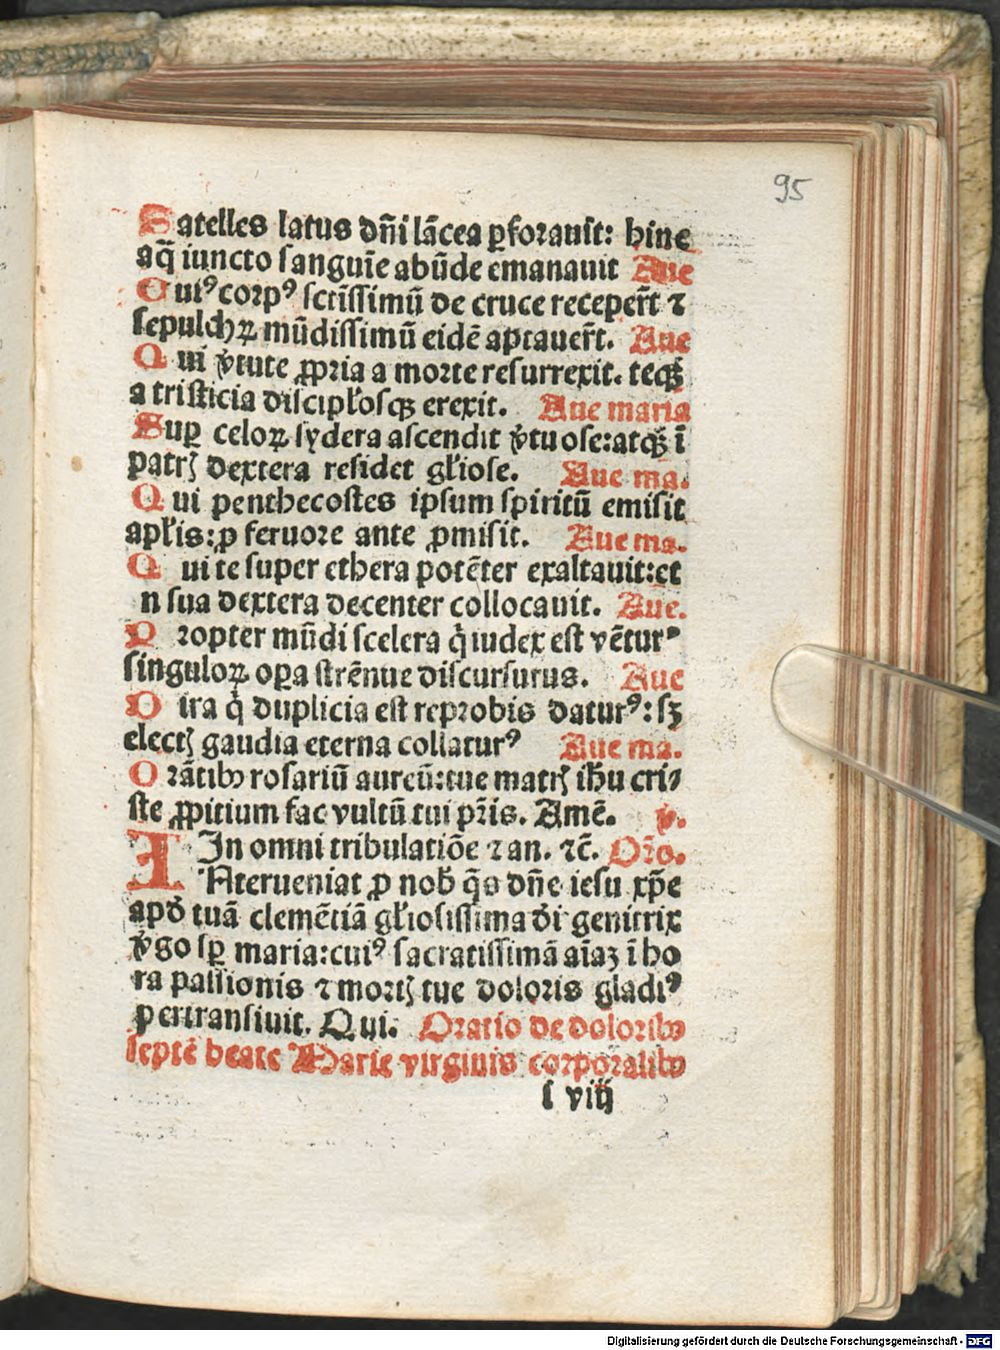 95
Satelles latus dñi lãcea ꝑforauit: hinc
aq̃ iuncto sanguīe abūde emanauit Aue
Cuiꝰ corpꝰ sctīssimū de cruce receper̃t ⁊
sepulchꝝ mūdissimū eidē aptauer̃t. Aue
Qui v̓tute ꝓpria a morte resurrexit. teqꝫ
a tristicia discipl̓osqꝫ erexit. Aue maria
Suꝑ celoꝝ sydera ascendit v̓tuose: atqꝫ ī
patrꝭ dextera residet gl̓iose. Aue ma.
Qui penthecostes ipsum spiritū emisit
apl̓is: ꝓ feruore ante ꝓmisit. Aue ma.
Qui te super ethera potēter exaltauit: et
n sua dextera decenter collocauit. Aue.
Propter mūdi scelera q̇ iudex est vēturꝰ
singuloꝝ oꝑa strēnue discursurus. Aue
Dira q̇ duplicia est reprobis daturꝰ: sꝫ
electꝭ gaudia eterna collaturꝰ Aue ma.
Orātibꝰ rosariū aureū: tue matrꝭ ih̓u cri⸗
ste ꝓpitium fac vultū tui pr̃is. Amē. v̓.
In omni tribulatiōe ⁊ an. ⁊c̃. Or̃o.
INterueniat ꝓ nob̓ q̃s dñe iesu xp̃e
apd̓ tuā clemētiā gl̓iosissima d̓i genitrix
v̓go sꝑ maria: cuiꝰ sacratissimā aīaꝫ ī ho
ra passionis ⁊ mortꝭ tue doloris gladiꝰ
pertransiuit. Qui. Oratio de doloribꝰ
septē beate Marie virginis corporalibꝰ
l viij
Digitalisierung gefördert durch die Deutsche Forschungsgemeinschaft - DFG